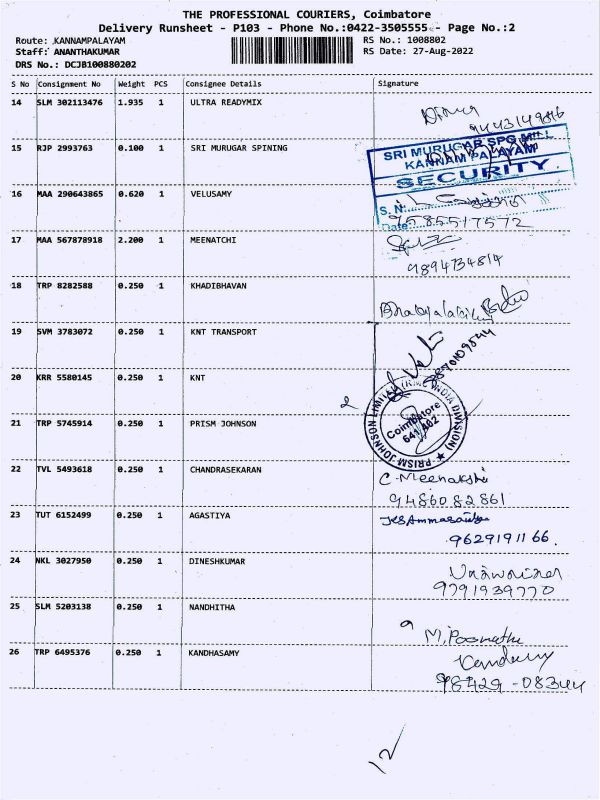 THE PROFESSIONAL COURIERS, Coimbatore
Delivery Runsheet - P103 - Phone No.:0422-3505555 - Page No.:2
Route: KANNAMPALAYAM RS No.: 1008802
Staff: ANANTHAKUMAR RS Date: 27-Aug-2022
DRS No.: DCJB100880202
S No Consignment No Weight PCS Consignee Details Signature
14 SLM 302113476 1.935 1 ULTRA READYMIX
9443149816
15 RJP 2993763 0.100 1 SRI MURUGAR SPINING
SRI MURUGAR SPG MILL
KANNAM PALAYAM
SECURITY
16 MAA 290643865 0.620 1 VELUSAMY
S. No
Date
9585517572
17 MAA 567878918 2.200 1 MEENATCHI
9894734814
18 TRP 8282588 0.250 1 KHADIBHAVAN
19 SVM 3783072 0.250 1 KNT TRANSPORT
20 KRR 5580145 0.250 1 KNT
2
21 TRP 5745914 0.250 1 PRISM JOHNSON
PRISM JOHNSON LIMITED (RMC INDIA DIVISION)
Coimbatore
641 402
22 TVL 5493618 0.250 1 CHANDRASEKARAN
C. Meenakshi
9486082861
23 TUT 6152499 0.250 1 AGASTIYA
9629191166.
24 NKL 3027950 0.250 1 DINESHKUMAR
9791939770
25 SLM 5203138 0.250 1 NANDHITHA
26 TRP 6495376 0.250 1 KANDHASAMY
98429-08344
12